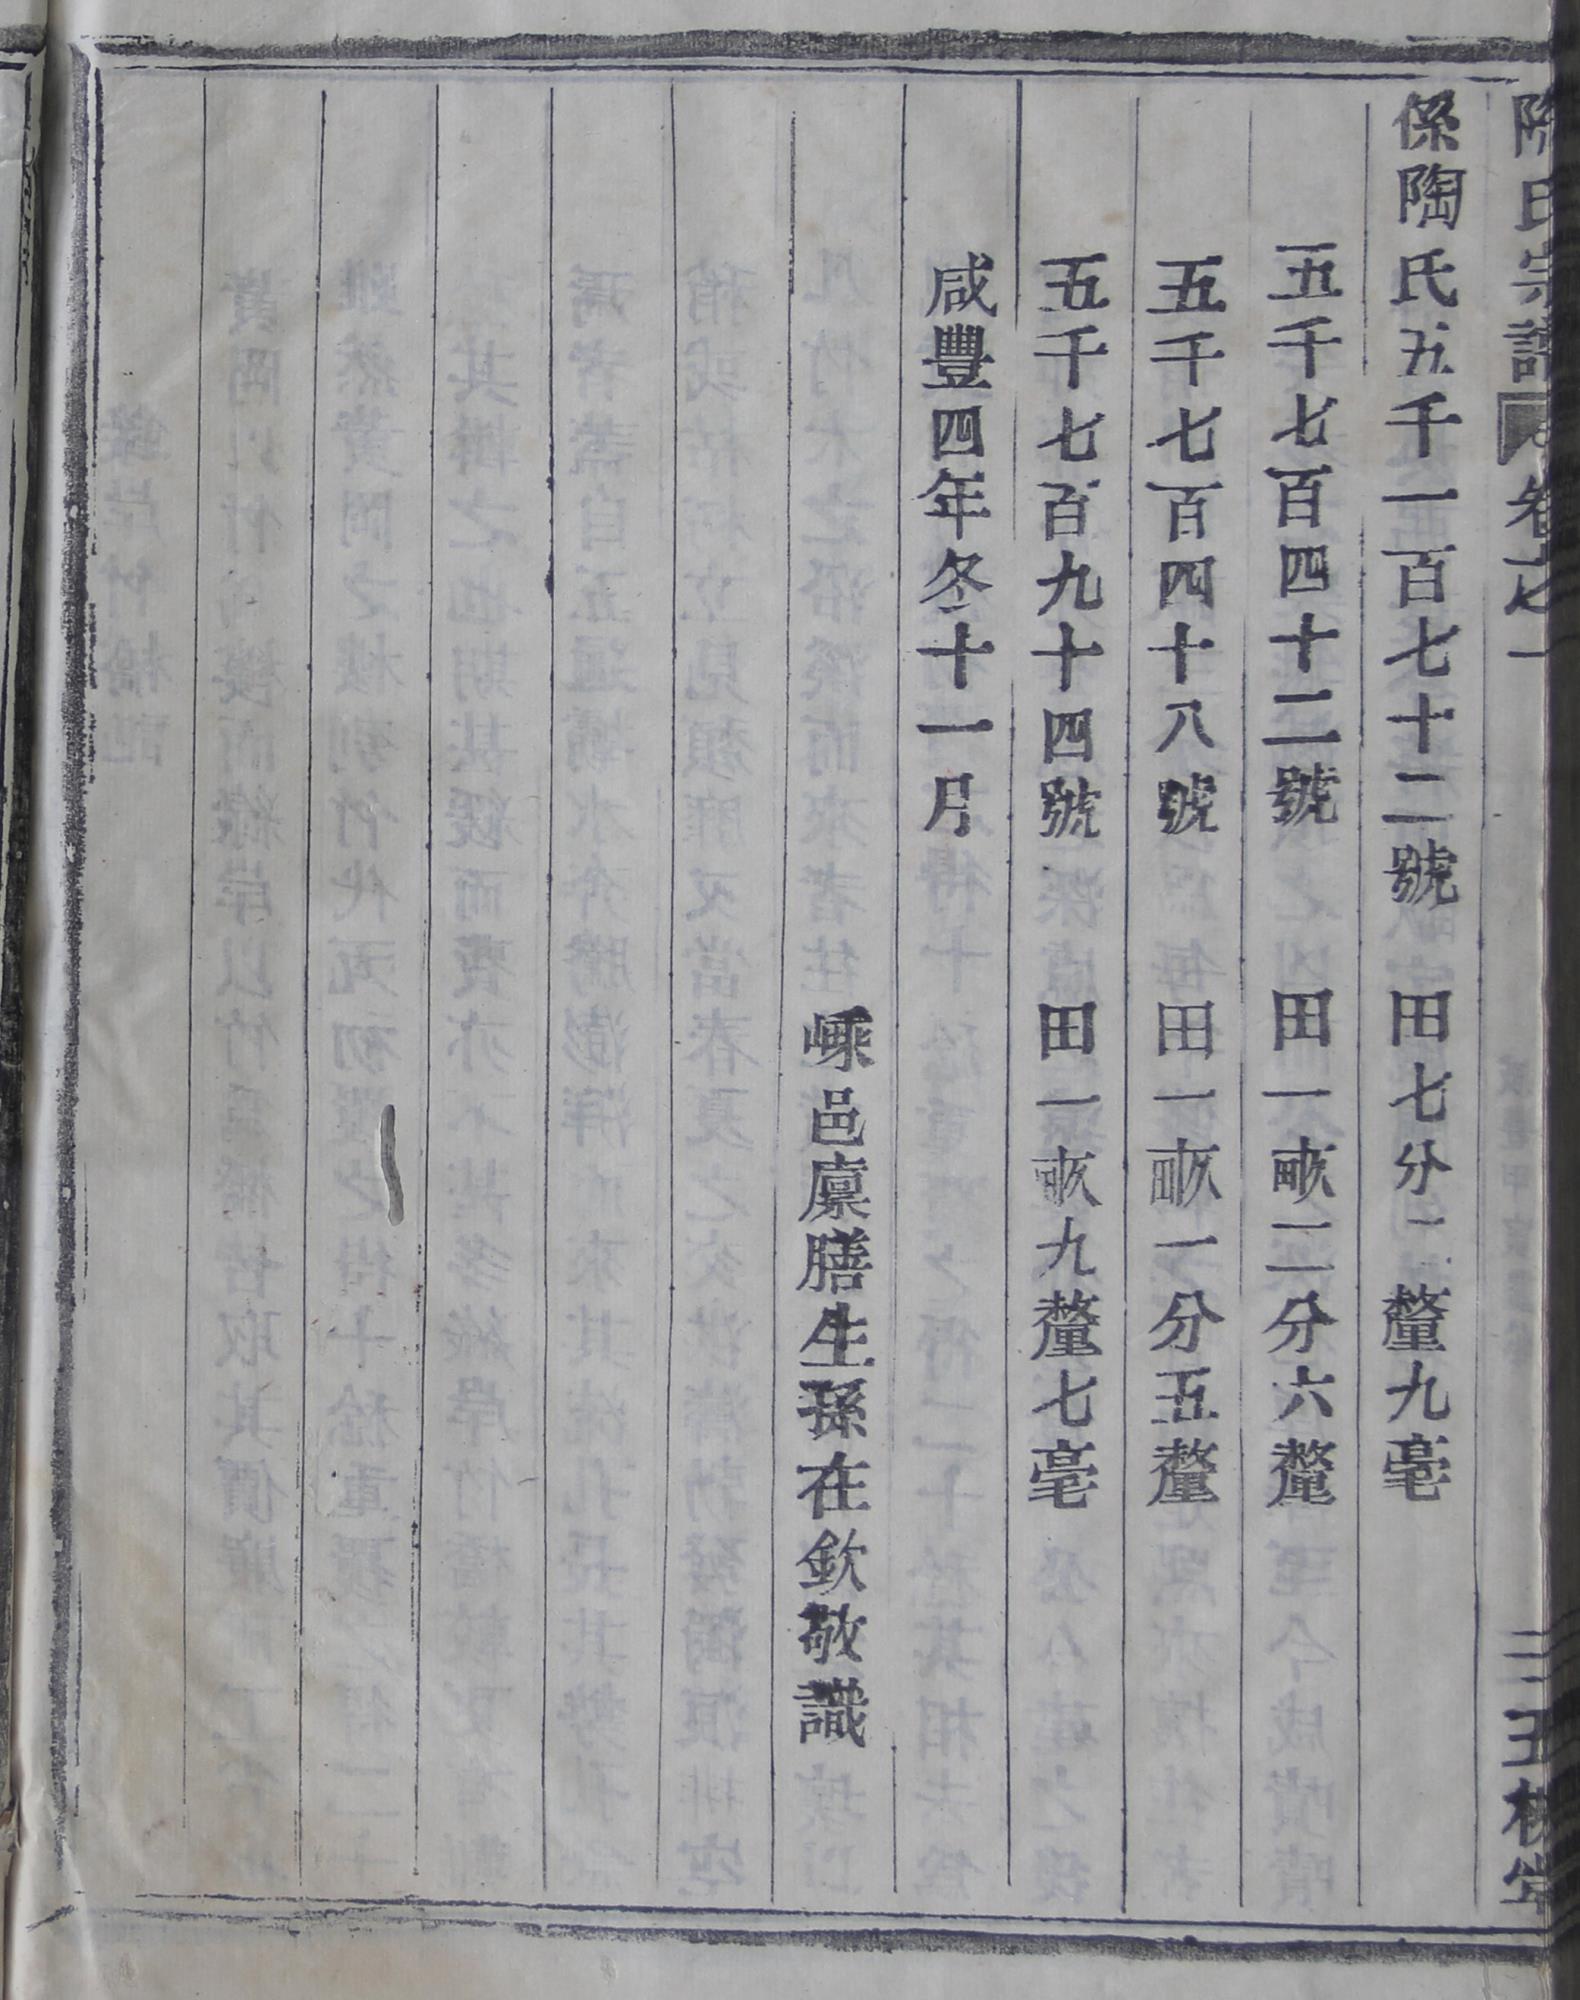 陶氏宗譜 卷七一 三 五柳堂
係陶氏五千一百七十二號 田七分二釐九毫
五千七百四十二號 田一畝二分六釐
五千七百四十八號 田一畝一分五釐
五千七百九十四號 田一畝九釐七毫
咸豐四年冬十一月
嵊邑廩膳生孫在欽敬識